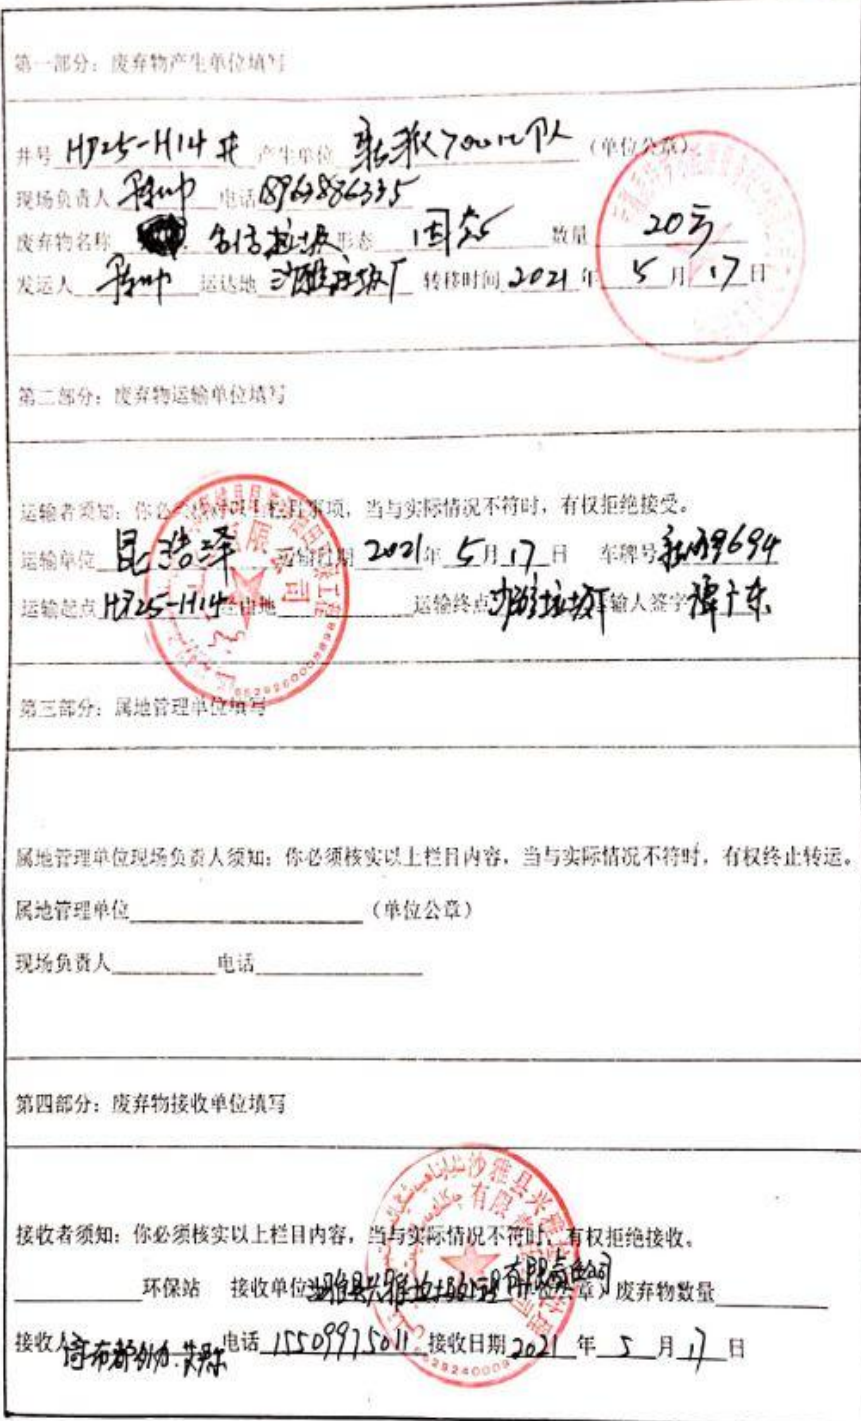 第一部分：废弃物产生单位填写
井号 HD25-H14井 产生单位 (单位公章)
现场负责人 电话 18963886335
废弃物名称 生活垃圾 形态 固态 数量 20方
发运人 运达地 沙雅垃圾厂 转移时间 2021 年 5 月 17 日
第二部分：废弃物运输单位填写
运输者须知：你必须核对以上栏目事项，当与实际情况不符时，有权拒绝接受。
运输单位 昆浩泽 运输日期 2021 年 5 月 17 日 车牌号 新N89694
运输起点 HD25-H14 经由地 运输终点 沙雅垃圾厂 运输人签字 谭广东
第三部分：属地管理单位填写
属地管理单位现场负责人须知：你必须核实以上栏目内容，当与实际情况不符时，有权终止转运。
属地管理单位 （单位公章）
现场负责人 电话
第四部分：废弃物接收单位填写
接收者须知：你必须核实以上栏目内容，当与实际情况不符时，有权拒绝接收。
环保站 接收单位 沙雅县兴雅垃圾处理有限责任公司（单位公章）废弃物数量
接收人 电话 15509975011 接收日期 2021 年 5 月 17 日